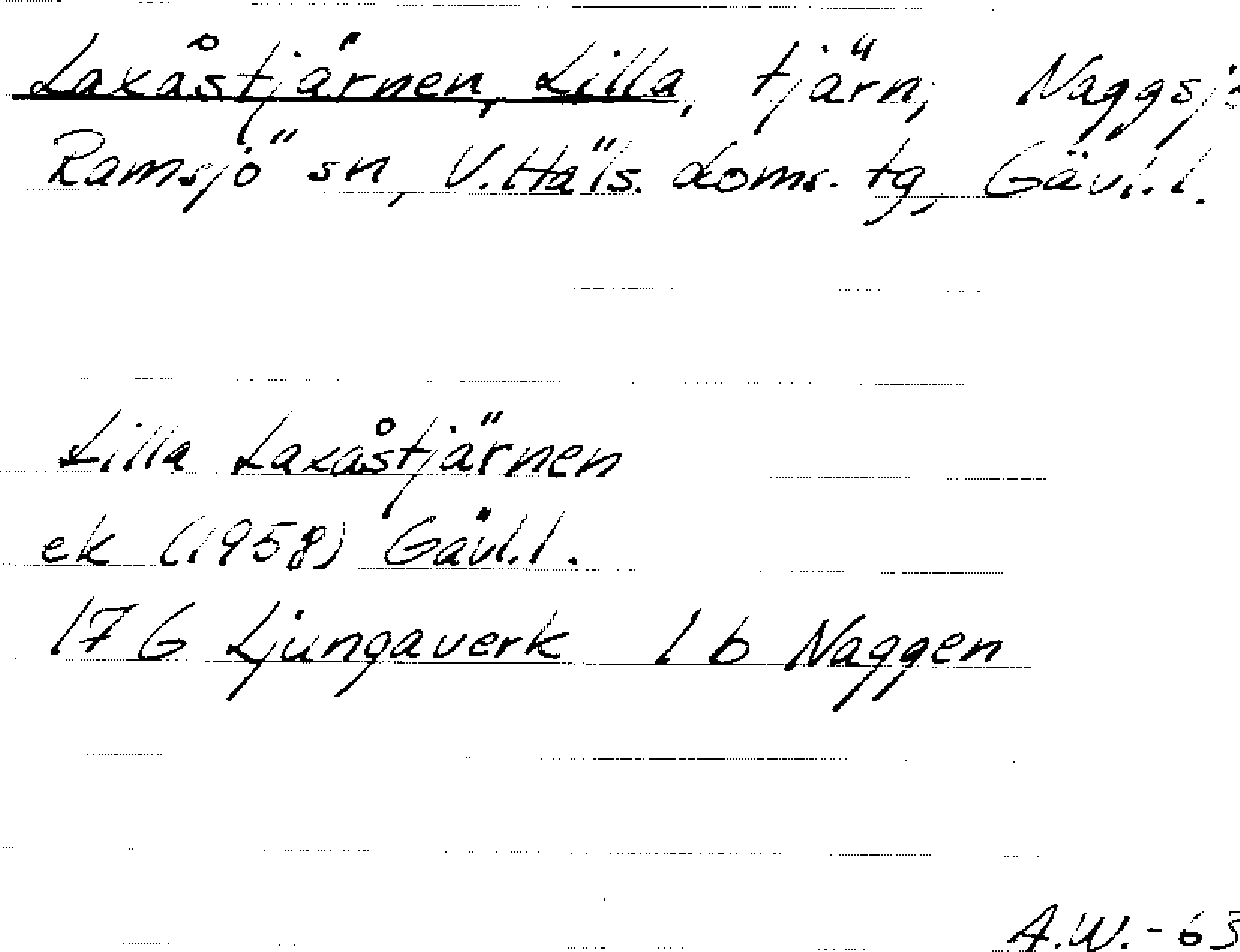 Laxåstjärnen, Lilla, tjärn, Naggsjö
Ramsjö sn, V. Häls. doms. tg, Gävl. l.
Lilla Laxåstjärnen
ek (1958) Gävl. l.
17 G Ljungaverk 1 b Naggen
A.W. - 63